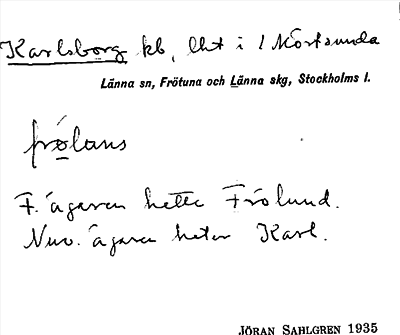 Karlsborg kb, lht i 1 Mörtsunda
Länna sn, Frötuna och Länna skg, Stockholms l.
frólans
F. ägaren hette Frölund.
Nuv. ägaren heter Karl.
JÖRAN SAHLGREN 1935